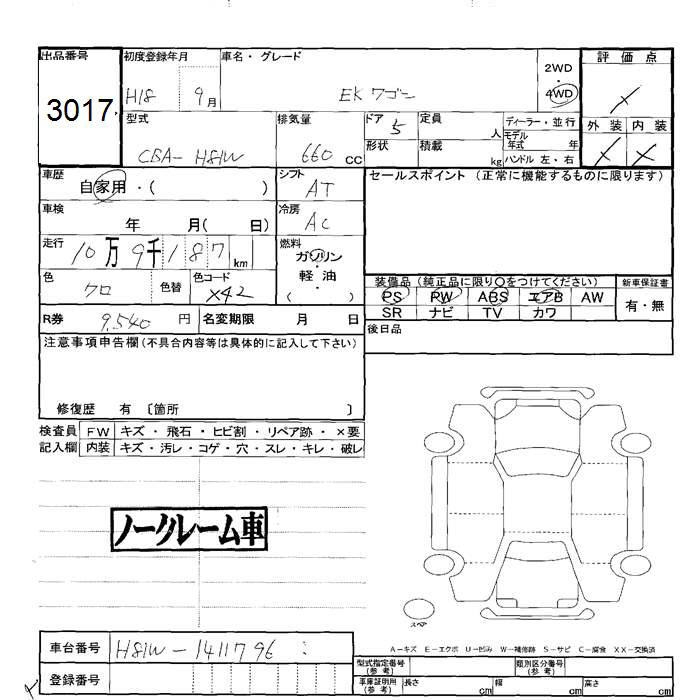 出品番号
3017
初度登録年月
H18 9月
車名・グレード
EK ワゴン
2WD
・
4WD
評価点
外装 内装
型式
CBA- H81W
排気量
660 cc
ドア 5
定員 人
ディーラー・並行
形状
積載 kg
モデル年式 年
ハンドル 左・右
車歴
自家用・( )
シフト
AT
セールスポイント (正常に機能するものに限ります)
車検
年 月( 日)
冷房
AC
走行
10万9千187km
燃料
ガソリン
・
軽油
( )
色
クロ
色替
色コード
X42
装備品 (純正品に限り○をつけてください)
新車保証書
PS PW ABS エアB AW
SR ナビ TV カワ
有・無
R券 9,540 円
名変期限 月 日
後日品
注意事項申告欄(不具合内容等は具体的に記入して下さい)
修復歴 有 〔箇所 〕
検査員
記入欄
FW キズ・飛石・ヒビ割・リペア跡・×要
内装 キズ・汚レ・コゲ・穴・スレ・キレ・破レ
ノークレーム車
スペア
A-キズ E-エクボ U-凹み W-補修跡 S-サビ C-腐食 XX-交換済
車台番号 H81W-1411796
登録番号
型式指定番号
(参考)
類別区分番号
(参考)
車庫証明用
(参考)
長さ cm
幅 cm
高さ cm